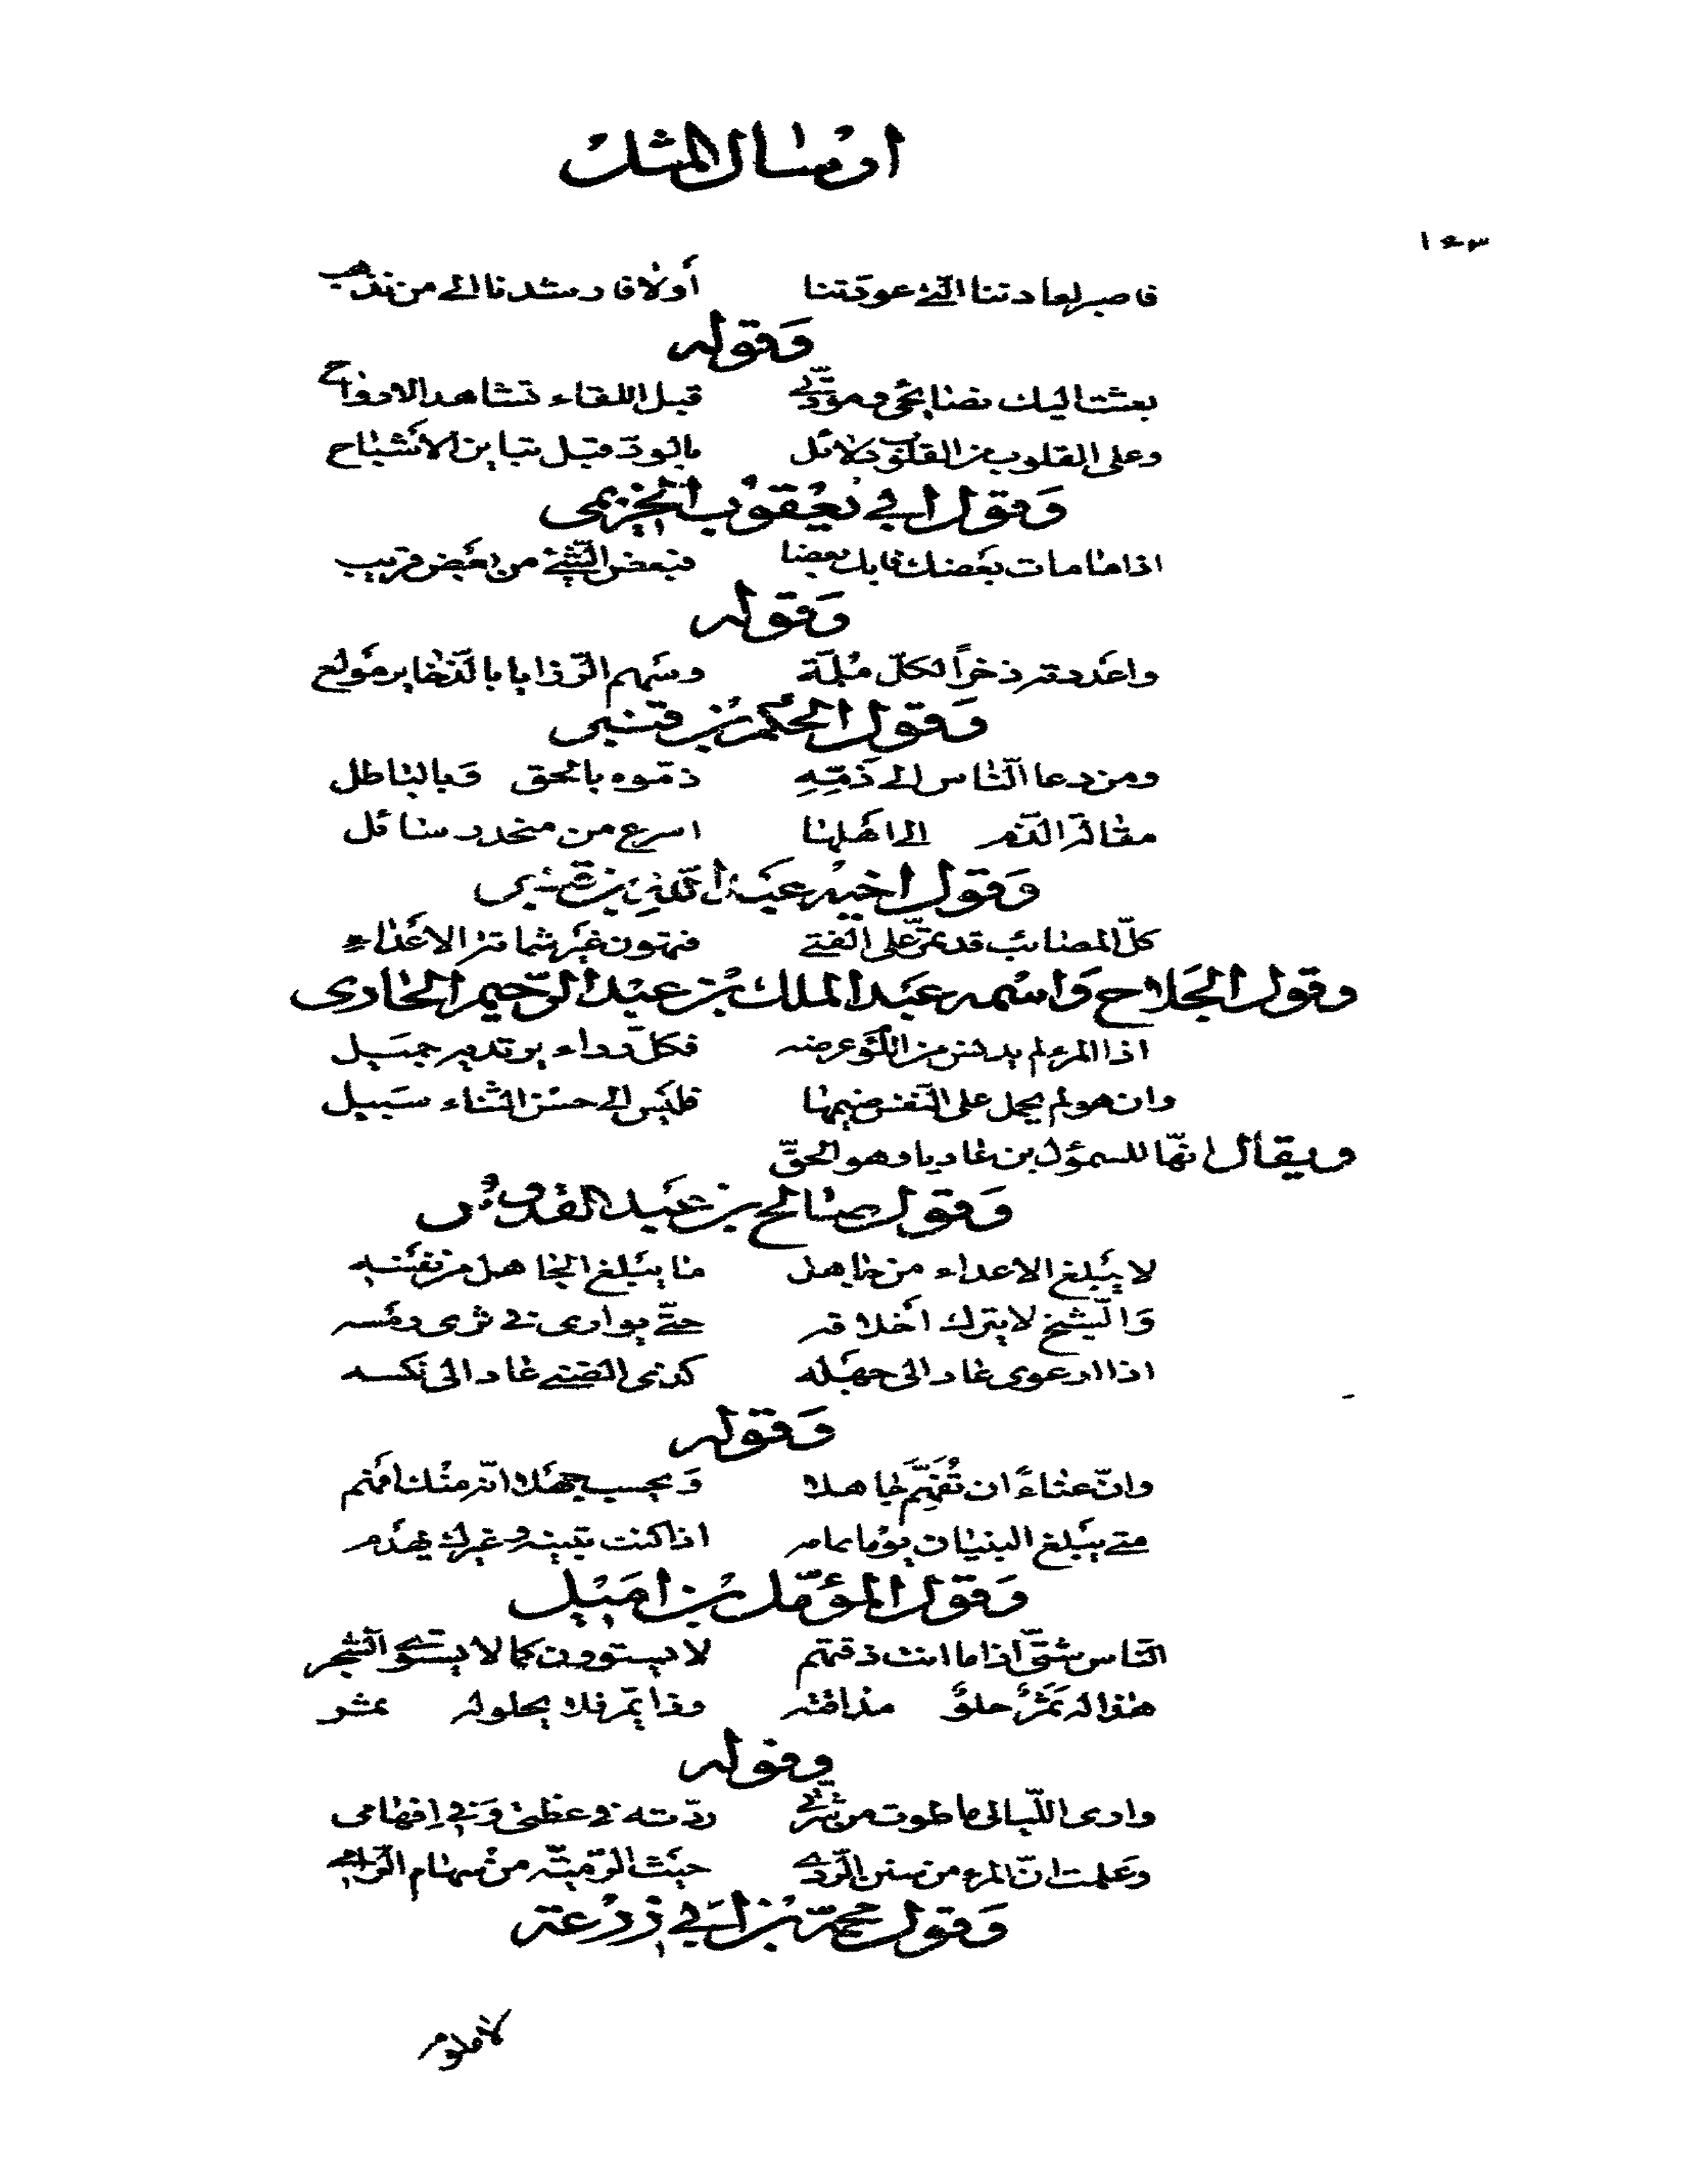 ارسال المثل
١٤٣
فاصبر لعادتنا التي عودتنا أولا فارشدنا الى من نذهب
وقوله
بعثت اليك نصائحي ومودّتي قبل اللقاء تشاهد الارواح
وعلى القلوب من القلوب دلائل بالودّ قبل تباين الأشباح
وقول ابي يعقوب الخزيمي
اذا ما مات بعضك فابك بعضا فبعض الشيئ من بعض قريب
وقوله
واعددته ذخراً لكلّ مُلِمَّة وسهم الرّزايا بالذخاير مولع
وقول الحكم بن قنبر
ومن دعا النّاس الى ذمّهِ ذمّوه بالحق وبالباطل
مقالة الذم الى اهلها اسرع من منحدر سائل
وقول اخيه عبد الله بن قنبر
كلّ المصائب قد تمرّ على الفتى فتهون غير شماتة الاعداء
وقول الجلاح واسمه عبد الملك بن عبد الرّحيم الحارثى
اذا المرء لم يدنس من اللّؤم عرضه فكلّ رداء يرتديه جميل
وان هو لم يحمل على النّفس ضيمها فليس الى حسن الثناء سبيل
ويقال انّها للسموّل بن عاديا وهو الحقّ
وقول صالح بن عبد القدّوس
لا يبلغ الاعداء من جاهل ما يبلغ الجاهل من نفسه
والشّيخ لا يترك أخلاقه حتّى يوارى في ثرى رمسه
اذا ارعوى عاد الى جهله كذى الضنى عاد الى نكسه
وقوله
وانّ عناءً ان تُفَهِّمَ جاهلا ويحسب جهلا انّه منك افهم
متى يبلغ البنيان يوما تمامه اذا كنت تبنيه وغيرك يهدم
وقول المؤمّل بن اميل
النّاس شتّى اذا ما انت ذقتهم لا يستوون كما لا يستوى الشّجر
هذا له ثمرٌ حلوٌ مذاقته وذا يمرّ فلا يحلو له ثمر
وقوله
وارى اللّيالى ما طوت من شرّتي ردّته في عظتي وفي افهامى
وعلمت انّ المرء من سنن الرّدى حيث الرّميّة من سهام الرّامي
وقول محمّد بن ابي زرعة